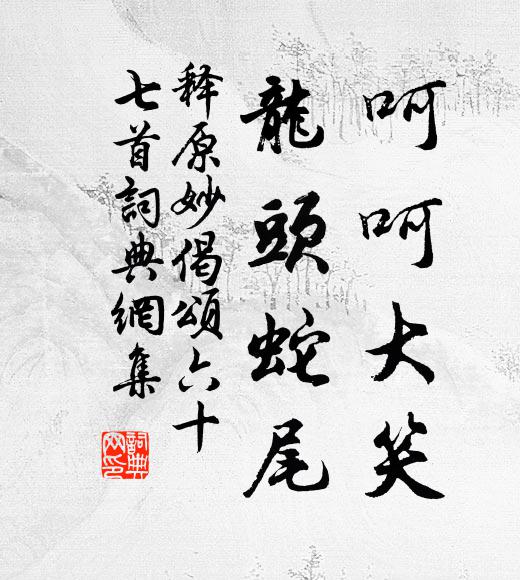 呵呵大笑
龍頭蛇尾
释原妙偈頌六十
七首詞典網集
詞典
网印